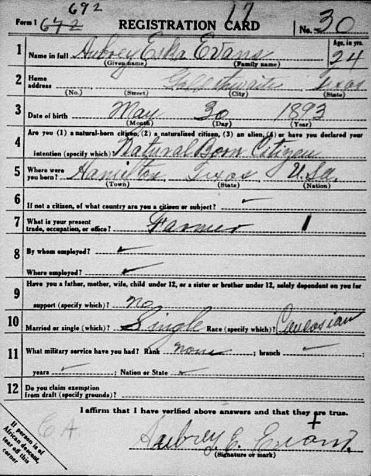 672
Form 1 642 REGISTRATION CARD 17 No. 30
1 Name in full Aubrey Evans Age, in yrs. 24
(Given name) (Family name)
2 Home address Texas
(No.) (Street) (City) (State)
3 Date of birth May 30 1893
(Month) (Day) (Year)
4 Are you (1) a natural-born citizen, (2) a naturalized citizen, (3) an alien, (4) or have you declared your
intention (specify which)? Natural Born Citizen
5 Where were you born? Hamilton Texas U.S.a.
(Town) (State) (Nation)
6 If not a citizen, of what country are you a citizen or subject? ✓
7 What is your present trade, occupation, or office? Farmer 1
8 By whom employed? ✓
Where employed? ✓
9 Have you a father, mother, wife, child under 12, or a sister or brother under 12, solely dependent on you for
support (specify which)? no
10 Married or single (which)? Single Race (specify which)? Caucasian
11 What military service have you had? Rank none ; branch ✓
years ✓ ; Nation or State ✓
12 Do you claim exemption from draft (specify grounds)?
I affirm that I have verified above answers and that they are true.
Aubrey E. Evans
(Signature or mark)
If person is of
African descent,
tear off this
corner